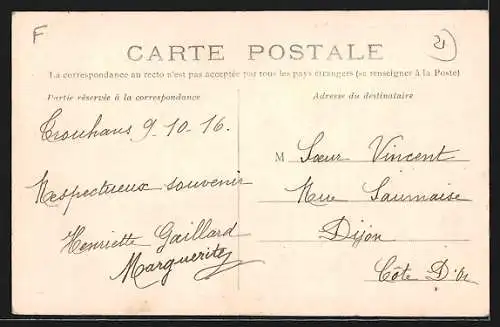 F
21
CARTE POSTALE
La correspondance au recto n'est pas acceptée par tous les pays étrangers (se renseigner à la Poste)
Partie réservée à la correspondance
Adresse du destinataire
Trouhaus 9-10-16.
Respectueux souvenir
Henriette Gaillard
Marguerite
M Sœur Vincent
Rue Saumaise
Dijon
Côte D'Or